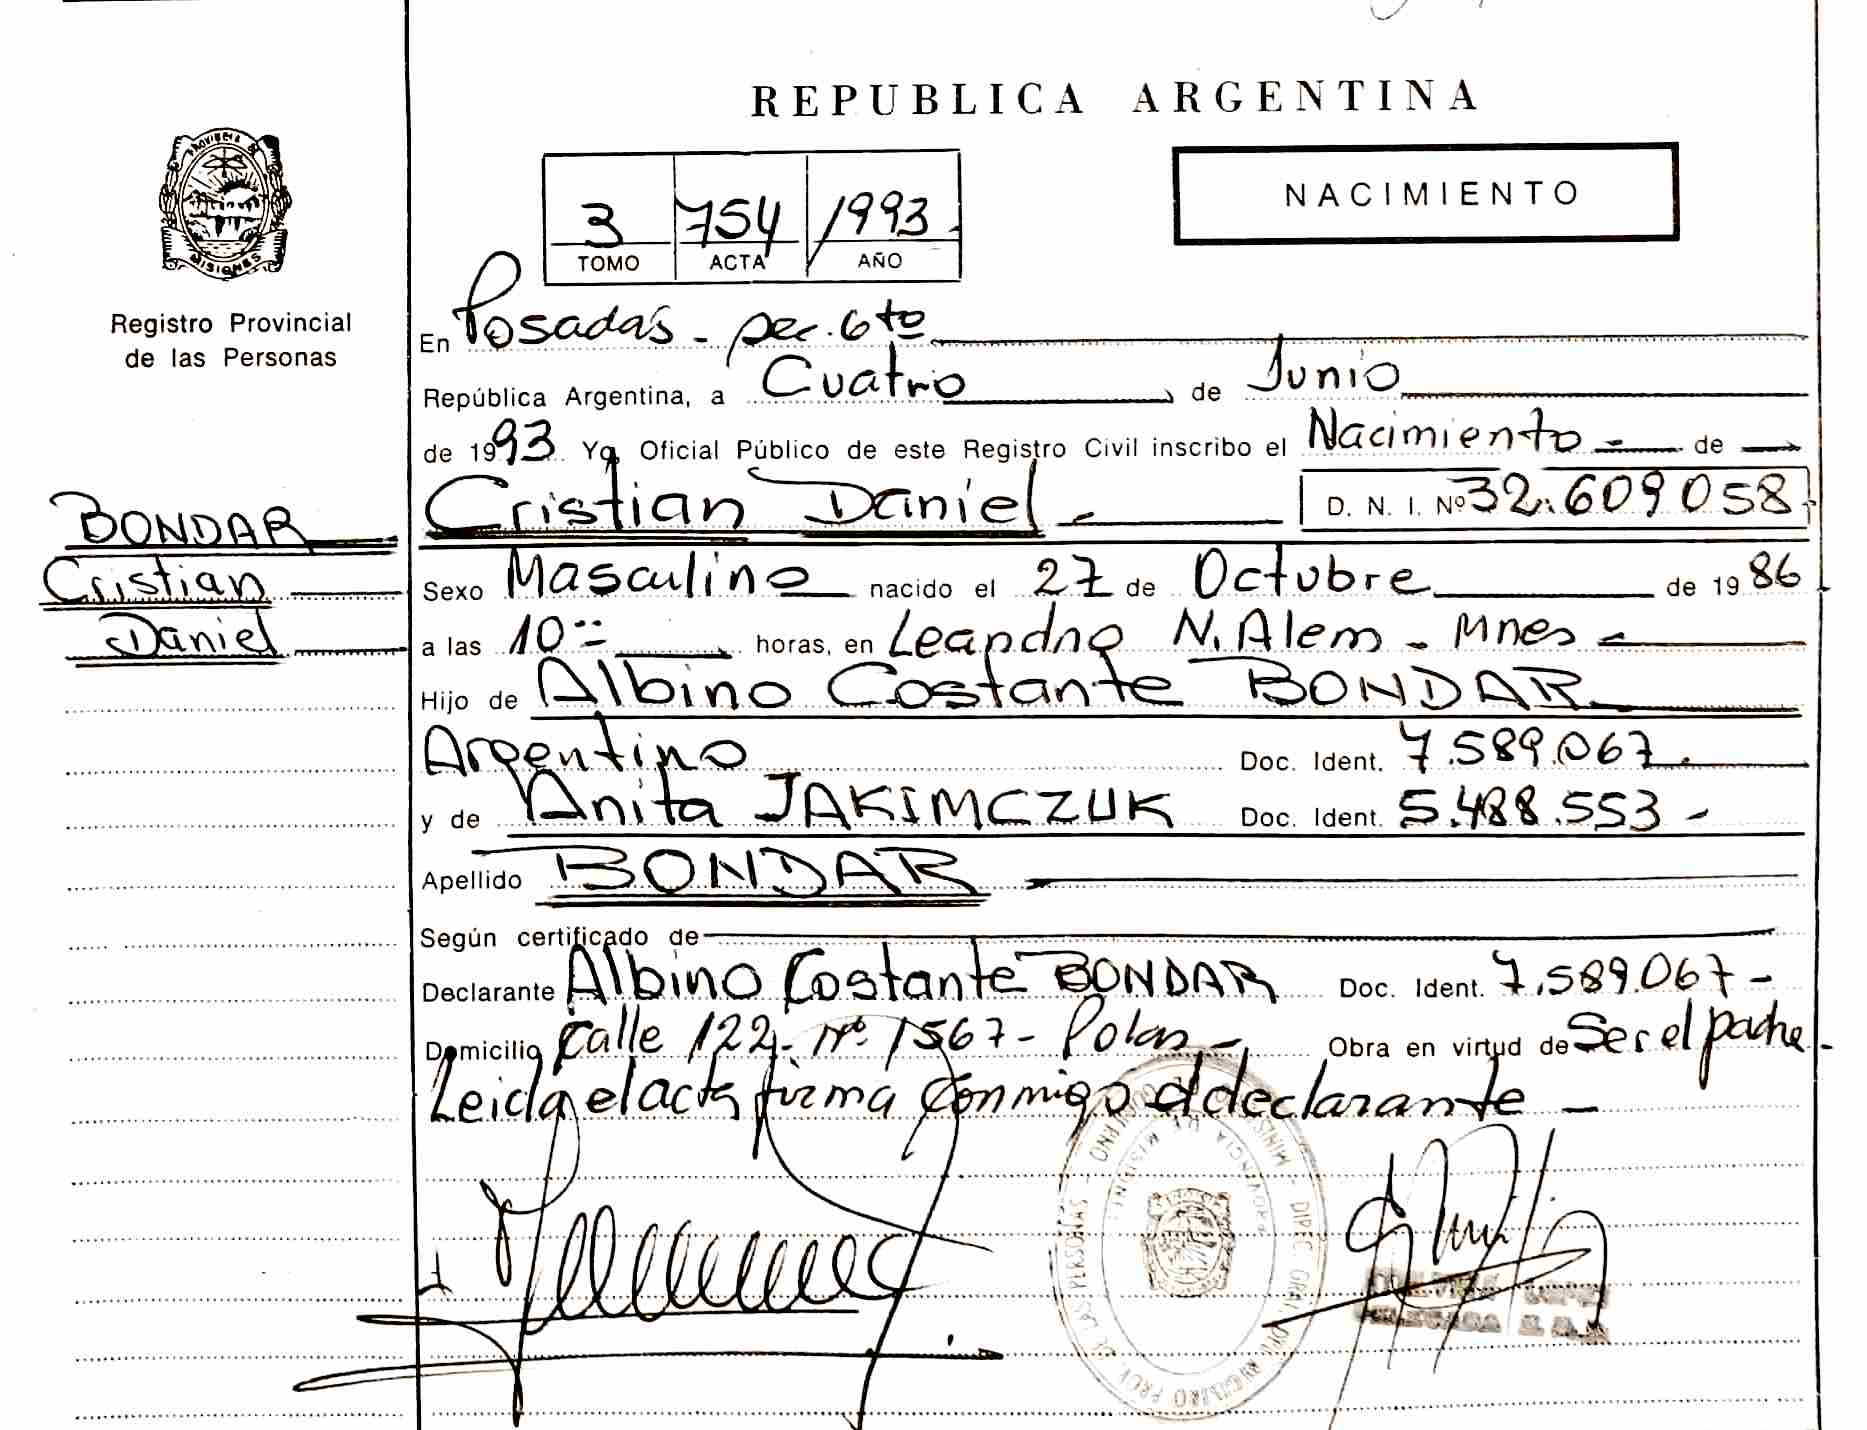 REPUBLICA ARGENTINA
PROVINCIA DE
MISIONES
Registro Provincial
de las Personas
NACIMIENTO
3 754 1993
TOMO ACTA AÑO
En Posadas - sec. 6to
República Argentina, a Cuatro de Junio
de 1993 Yo, Oficial Público de este Registro Civil inscribo el Nacimiento de
BONDAR
Cristian
Daniel
Cristian Daniel - D. N. I. Nº 32.609058
Sexo Masculino nacido el 27 de Octubre de 1986
a las 10 horas, en Leandro N. Alem - Mnes -
Hijo de Albino Costante BONDAR
Argentino Doc. Ident. 7.589.067.
y de Anita JAKIMCZUK Doc. Ident. 5.488.553 -
Apellido BONDAR
Según certificado de
Declarante Albino Costante BONDAR Doc. Ident. 7.589.067 -
Domicilio Calle 122 - nº 1567 - Obra en virtud de Ser el padre -
Leida el acta firma conmigo el declarante -